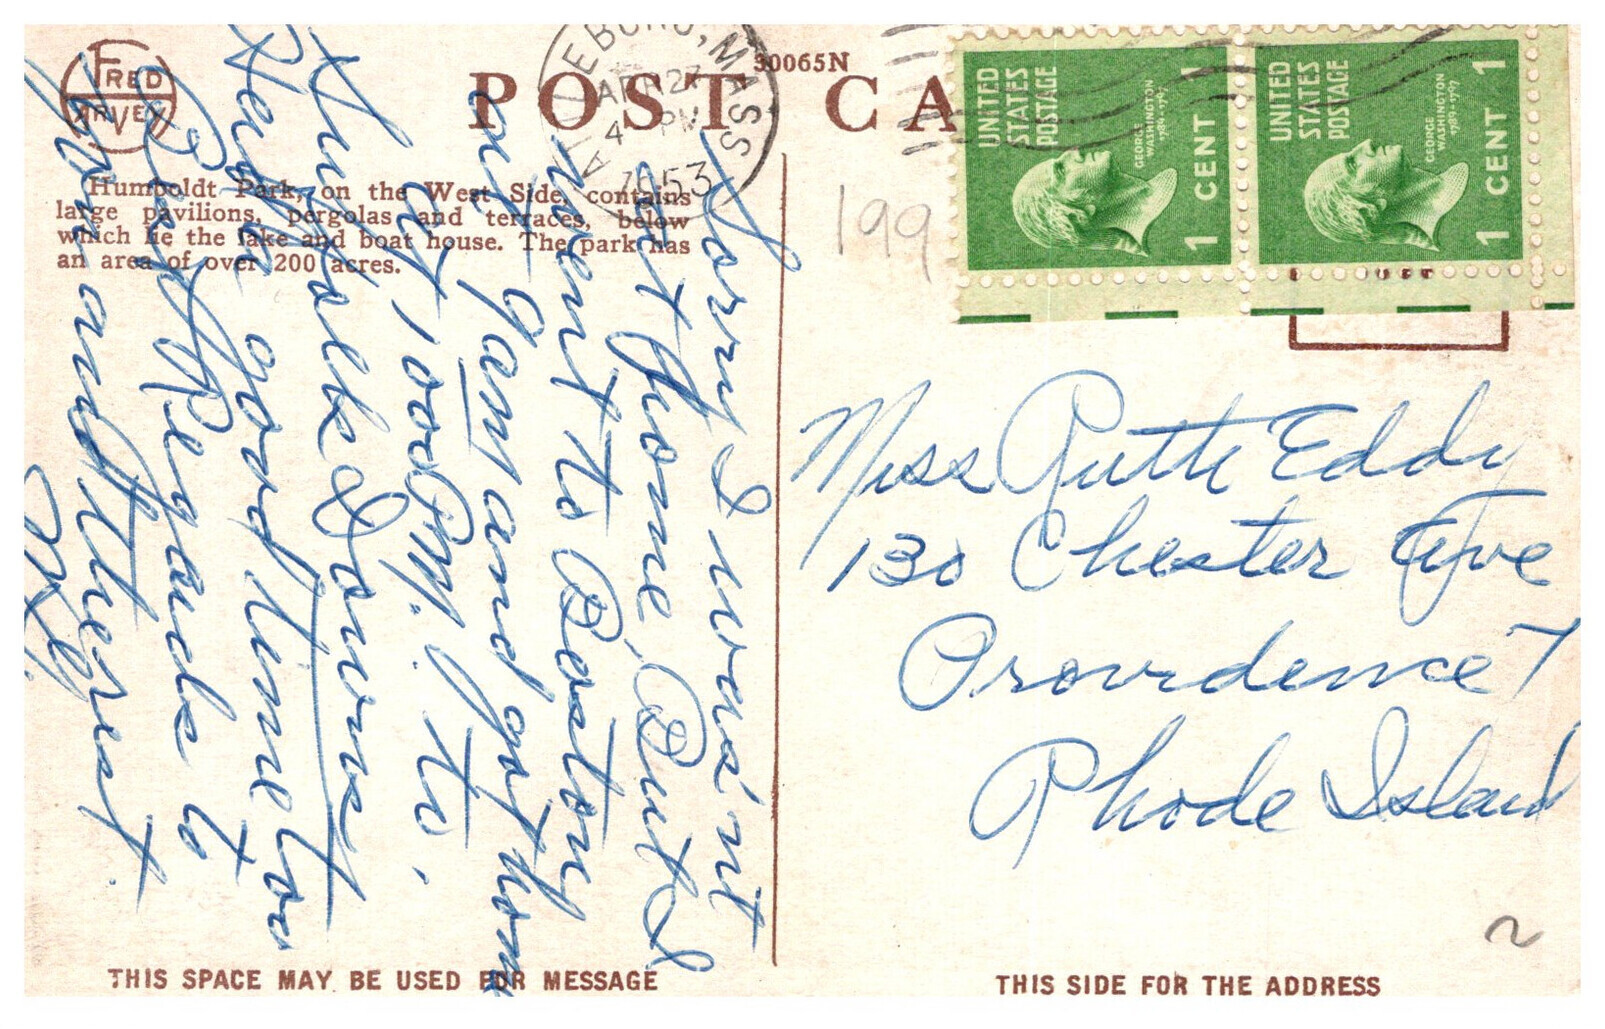 FRED
HARVEY
POST CA
30065N
ATTLEBORO, MASS
APR 27
4 PM
1953
UNITED
STATES
POSTAGE
GEORGE
WASHINGTON
1789-1797
1 CENT 1
UNITED
STATES
POSTAGE
GEORGE
WASHINGTON
1789-1797
1 CENT 1
199
Humboldt Park, on the West Side, contains
large pavilions, pergolas and terraces, below
which lie the lake and boat house. The park has
an area of over 200 acres.
Sorry I was'nt
at home, But I
went to Boston
on 9am and got hom
at 1,00 P.M. to,
Suffolk Downs
Heap good time too
Regards to
you and the rest
Miss Ruth Eddy
130 Chester Ave
Providence 7
Rhode Island
2
THIS SPACE MAY BE USED FOR MESSAGE
THIS SIDE FOR THE ADDRESS